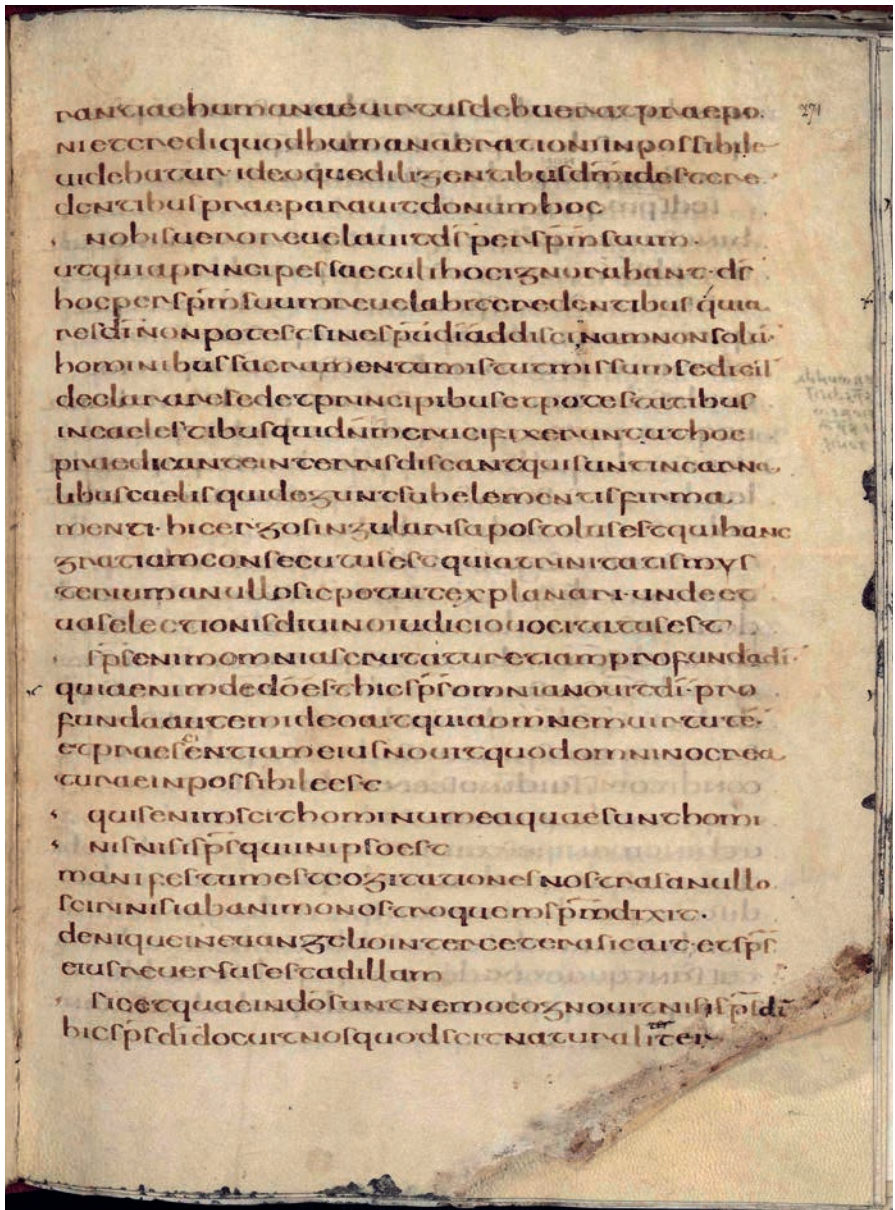 rantiaehumanaeuirtusdebueratpraepo· 271
nietcrediquodhumanaerationiinpossibile
uidebaturideoquediligentibusdm̄idestcre
dentibuspraeparauitdonumhoc
nobisueroreuelauitd̄spersp̄msuum·
utquiaprincipessaeculihocignorabant·d̄s
hocpersp̄msuumreuelabitcredentibusquia
resd̄inonpotestsinesp̄ud̄iaddiscinamnonsolū
hominibussacramentumistutmissumsedicit
declararesedetprincipibusetpotestatibus
incaelestibusquidn̄mcrucifixeruntuthoc
praedicanteinterrisdiscantquisuntincarna
libuscaelisquideguntsubelementisfirma
menti·hicergosingularisapostolusestquihanc
gratiamconsecutusestquiatrinitatismys
teriumanullosicpotuitexplanari·undeet
uaselectionisdiuinoiudiciouocitatusest
sp̄senimomniascrutaturetiamprofundad̄i·
quiaenimded̄oesthicsp̄somnianouitd̄i·pro
fundaautemideoaitquiaomnemuirtutē·
etpraesentiameiusnouitquodomninocrea
turaeinpossibileest
quisenimscithominumeaquaesunthomi
nisnisisp̄squiinipsoest
manifestumestcogitationesnostrasanullo
scirinisiabanimonostroquemsp̄mdixit·
deniqueineuangeliointerceterasicait·etsp̄s
eiusreuersusestadillam
sicetquaeind̄osuntnemocognouitnisisp̄sd̄i
hicsp̄sd̄idocuitnosquodscitnaturaliter